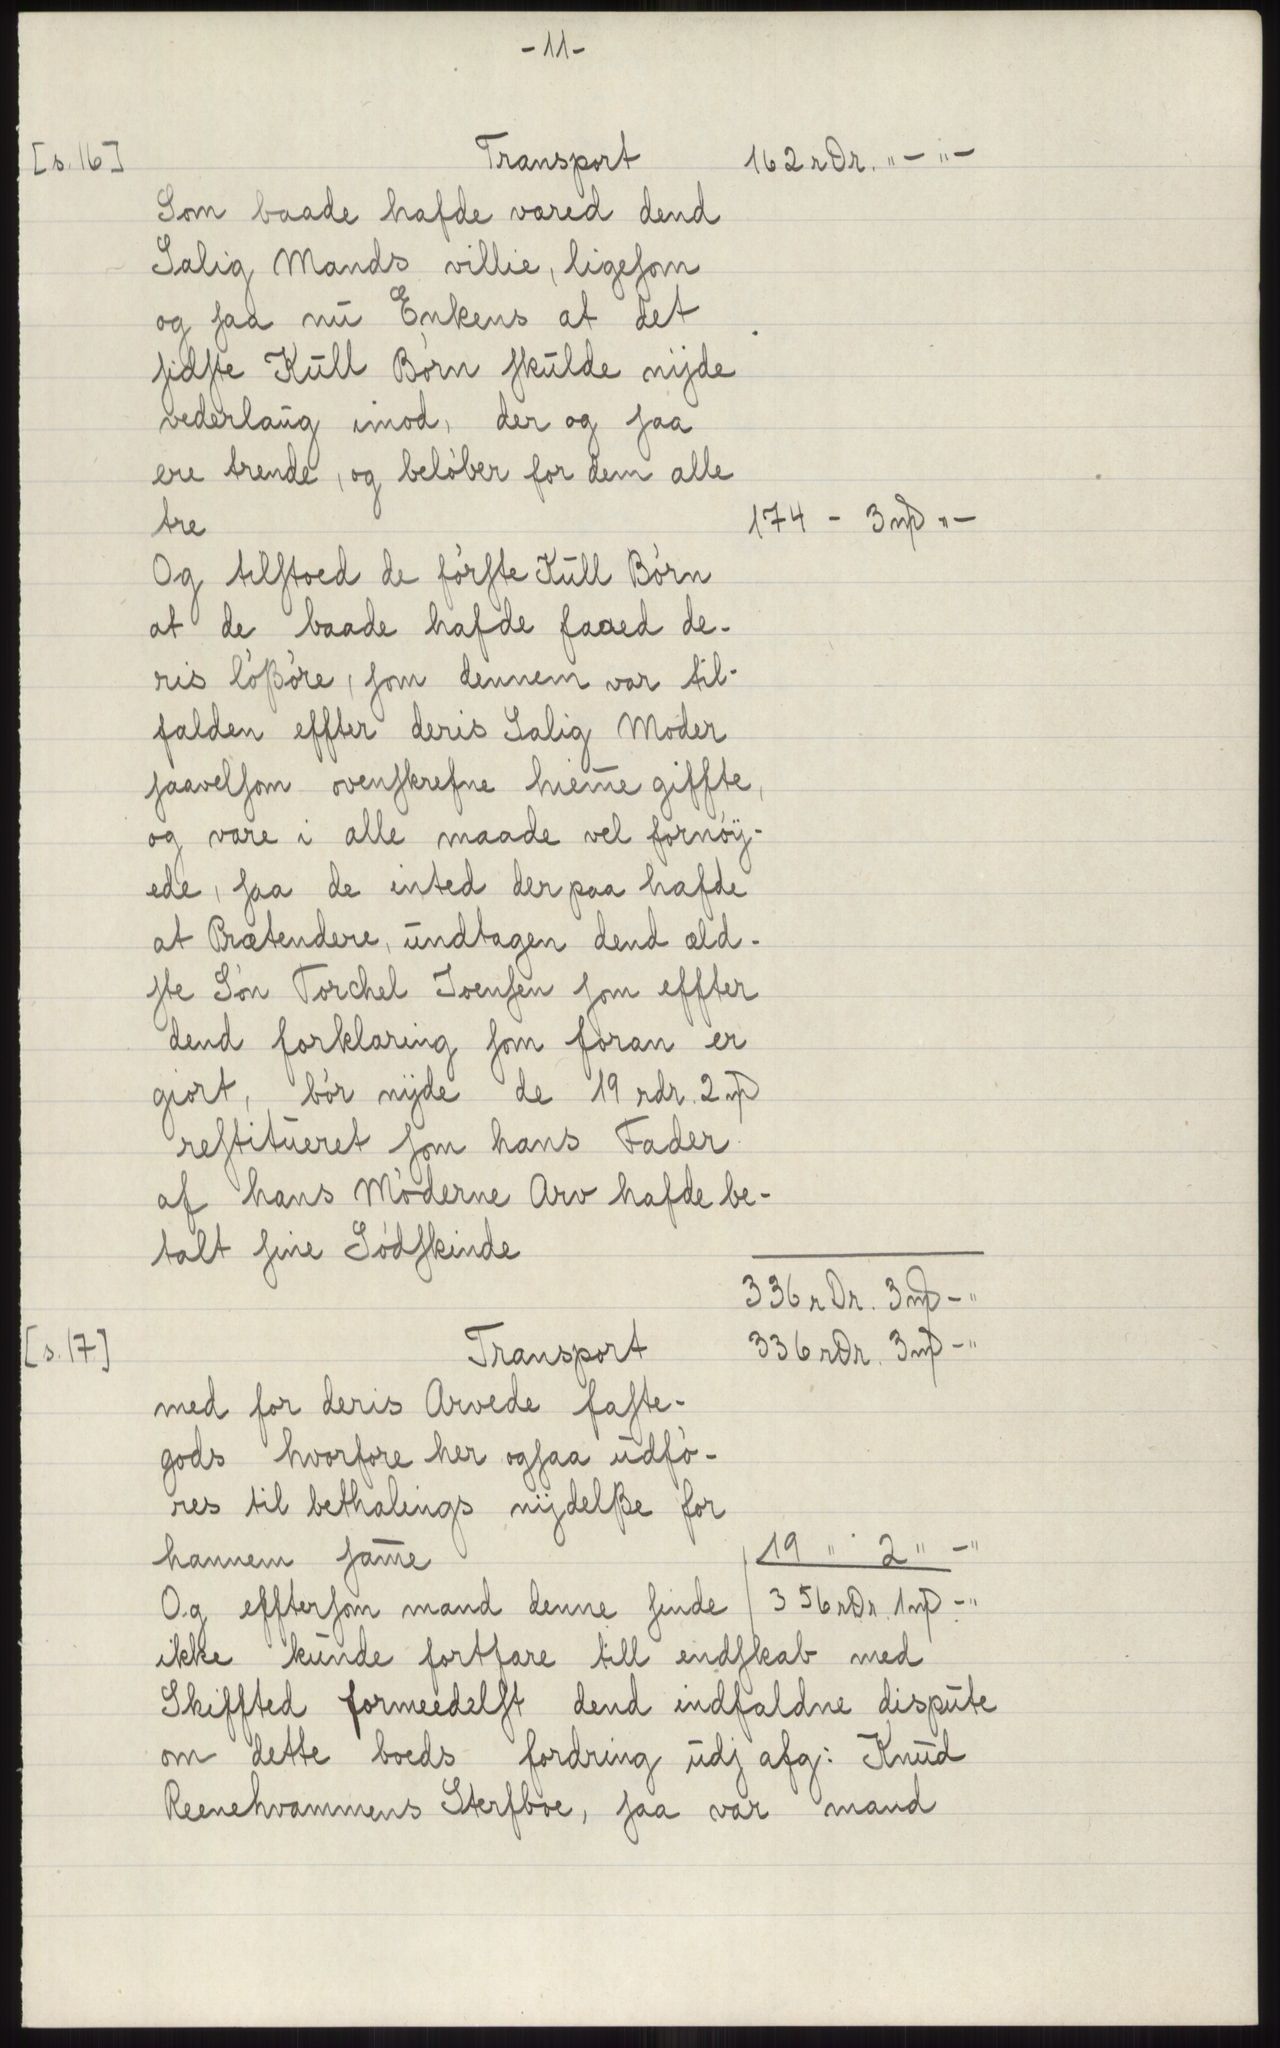 -11-
[s. 16] Transport 162 rDr. „ - „ -
Som baade hafde vared dend
Salig Mands villie, ligesom
og saa nu Enkens at det
sidste Kull Børn skulde nijde
vederlaug imod, der og saa
ere trende, og beløber for dem alle
tre 174 - 3 mƿ „ -
Og tilstoed de første Kull Børn
at de baade hafde faaed de-
ris løßøre, som dennem var til-
falden effter deris Salig Moder
saavelsom ovenskrefne hieme giffte,
og vare i alle maade vel fornøÿ-
ede, saa de inted der paa hafde
at Prætendere, undtagen dend æld-
ste Søn Torchel Joensen som effter
dend forklaring som foran er
giort, bør nijde de 19 rdr. 2 mƿ
restitueret som hans Fader
af hans Møderne Arv hafde be-
talt sine Sødskinde
336 rDr. 3 mƿ - „
[s. 17] Transport 336 rDr. 3 mƿ - „
med for deris Arvede faste-
gods hvorfore her ogsaa udfø-
res til bethalings nijdelße for
hannem same 19 „ 2 „ - „
Og efftersom mand denne sinde 356 rDr. 1 mƿ - „
ikke kunde fortfare till endskab med
Skiffted formeedelst dend indfaldne dispute
om dette boeds fordring udj afg: Knud
Reenehvammens Sterfboe, saa var mand